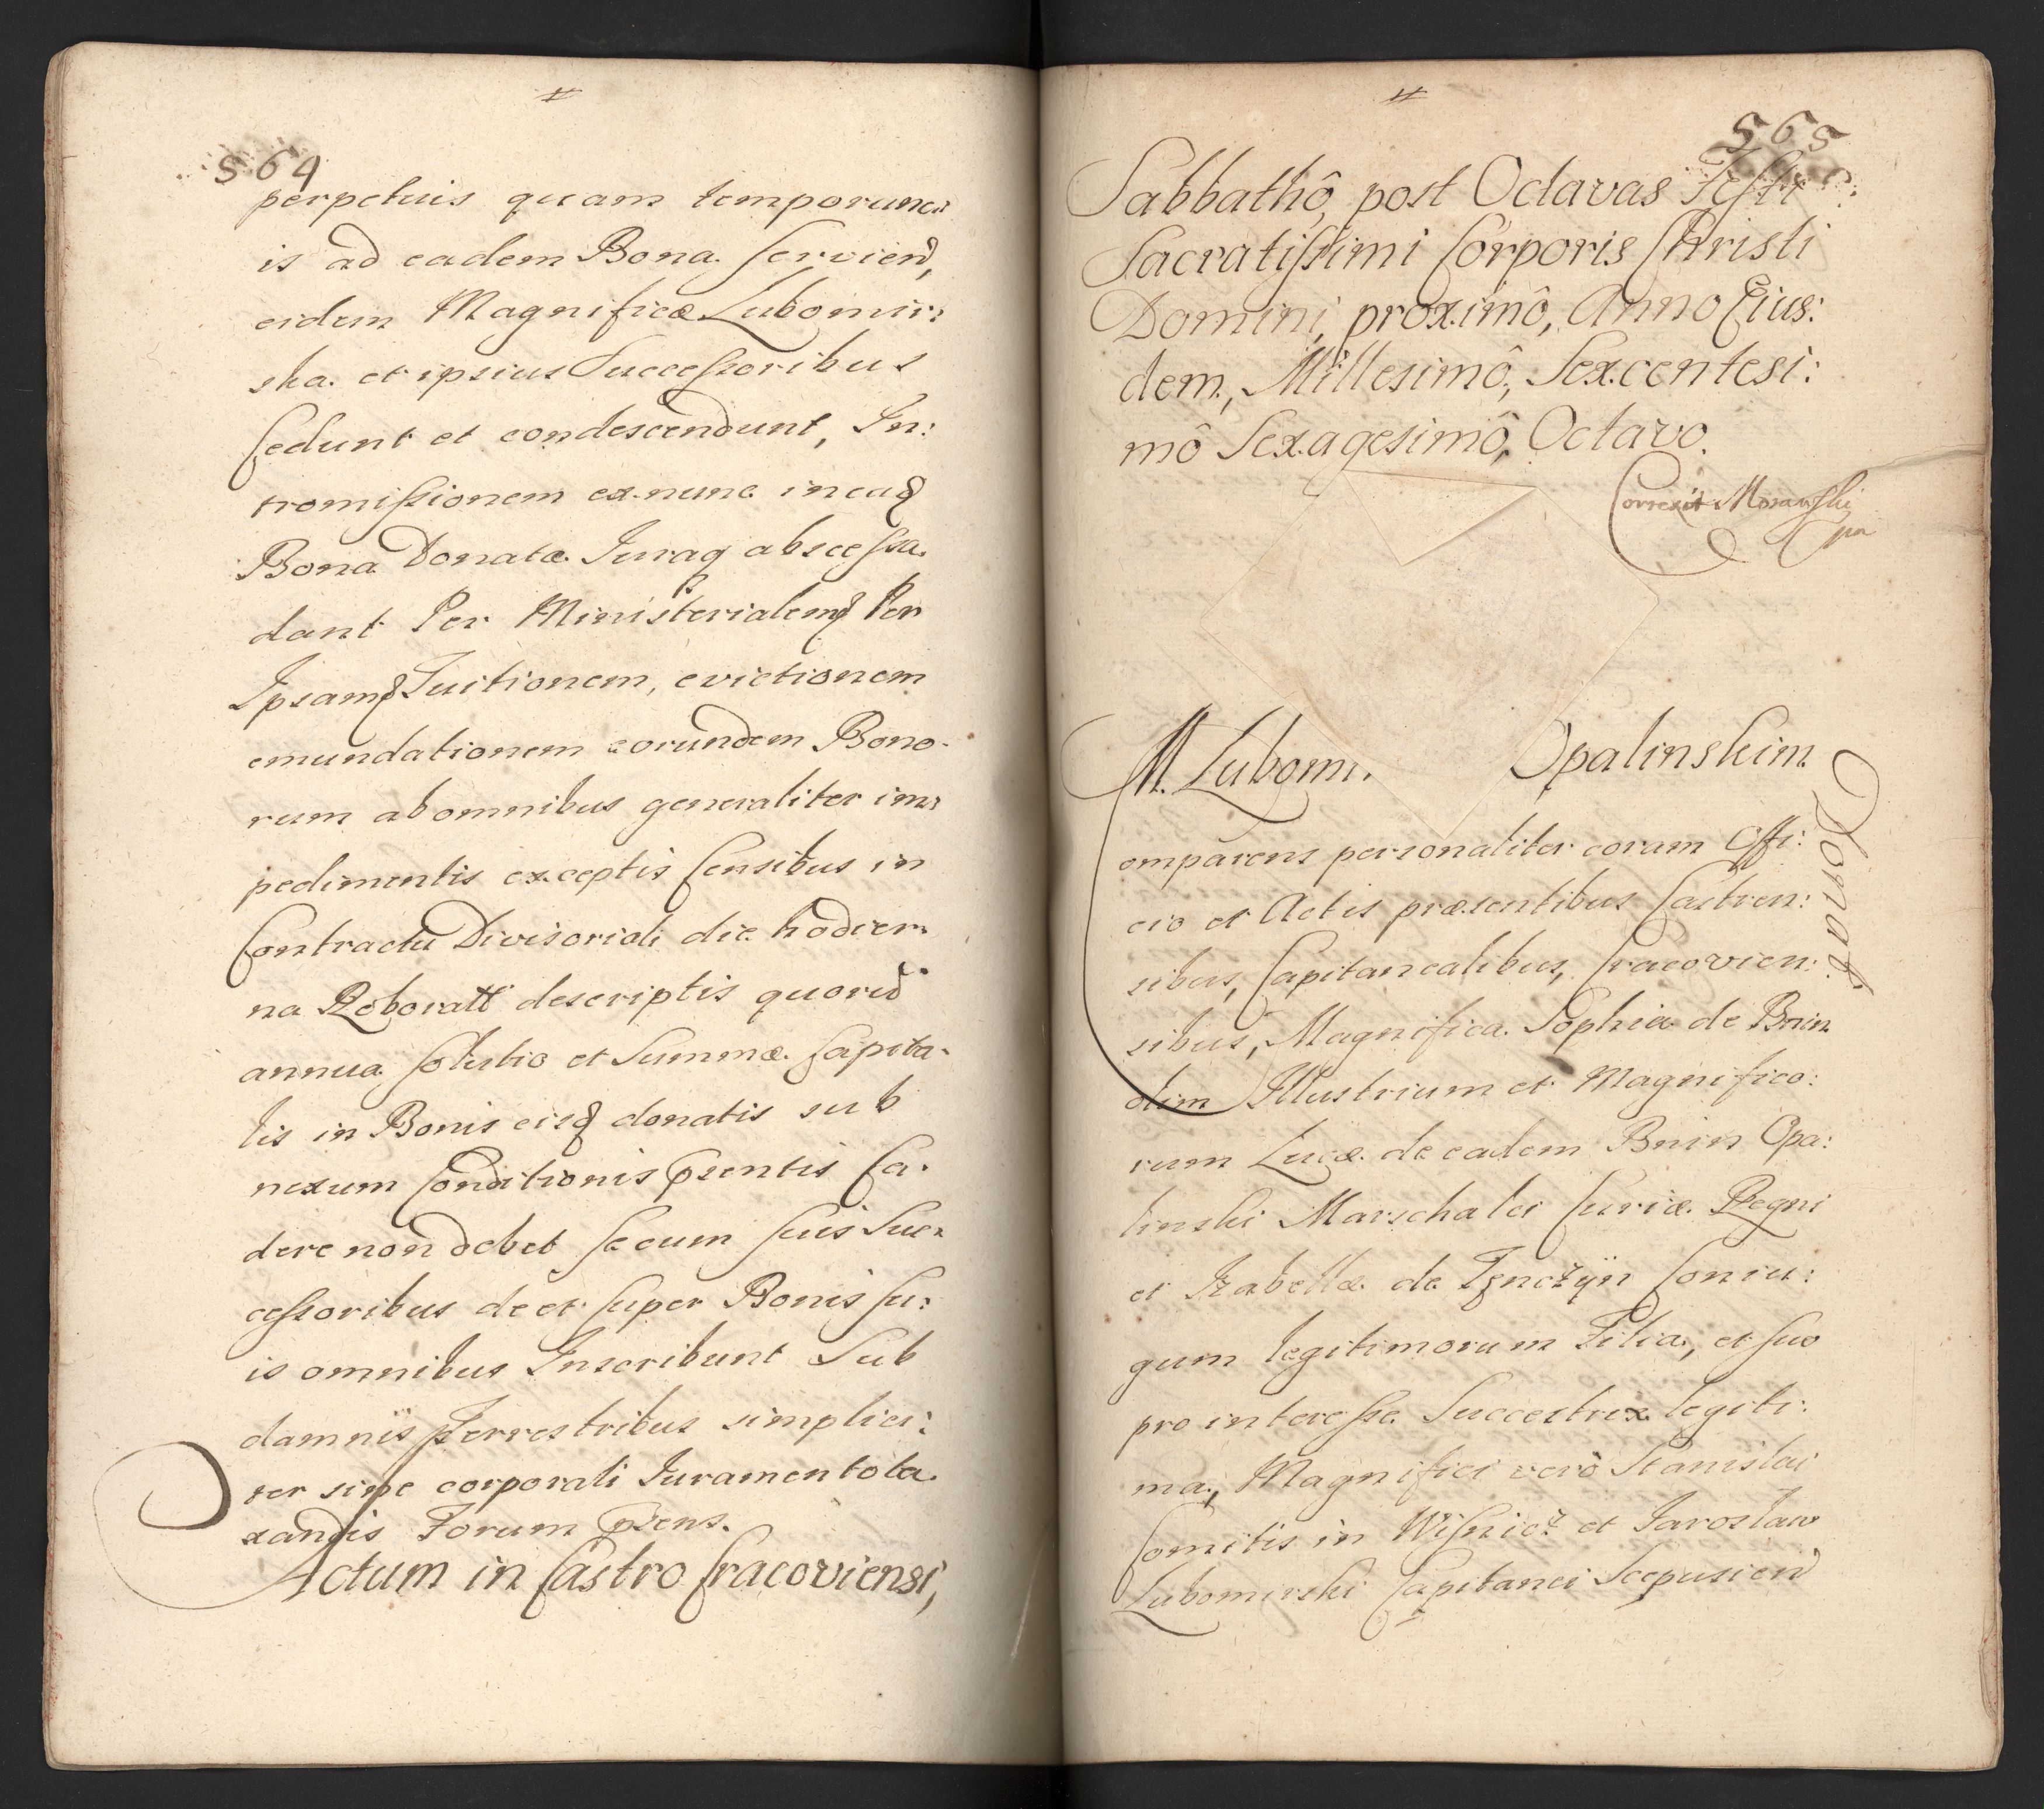 564
perpetuis quam temporane:
is ad eadem Bona servien̄,
eidem Magnificæ Lubomir:
ska et ipsius Successoribus
Cedunt et condescendunt, In:
tromissionem ex nunc in eadꝫ
Bona Donatæ Juraqꝫ abscessa
dant Per Ministerialemqꝫ Per
Ipsamqꝫ Tuitionem, evictionem
emundationem eorundem Bono-
rum ab omnibus generaliter im:
pedimentis exceptis Censibus in
Contractu Divisoriali die hodier:
na Roboratt descriptis quorū
annua solutio et Summæ Capita-
lis in Bonis eisqꝫ donatis sub
nexum Conditionis pr̄sentis Ca-
dere non debet se cum suis Suc-
cessoribus de et super Bonis su:
is omnibus Inscribunt Sub
damnis Terrestribus simplici:
ter sine corporali Juramento ta-
xandis Forum pr̄sens.
Actum in Castro Cracoviensi,
565
Sabbathô, post Octavas Festi
Sacratissimi Corporis Christi
Domini, proximô, Anno Eius:
dem, Millesimô, Sexcentesi:
mô Sexagesimô, Octavo.
Correxit Morawski
mpa
M. Lubom. Opalinskim
Donat.
Comparens personaliter coram Offi:
cio et Actis præsentibus Castren:
sibus, Capitanealibus, Cracovien:
sibus, Magnifica Sophia de Bnin
olim Illustrium et Magnifico:
rum Lucæ de eadem Bnin Opa:
linski Marschalci Curiæ Regni
et Izabellæ de Tęnczÿn Coniu:
gum legitimorum Filia, et suo
pro interesse Successtrix legiti:
ma, Magnifici verò Stanislai
Comitis in Wisnicz et Jaroslaw
Lubomirski Capitanei Scepusien̄